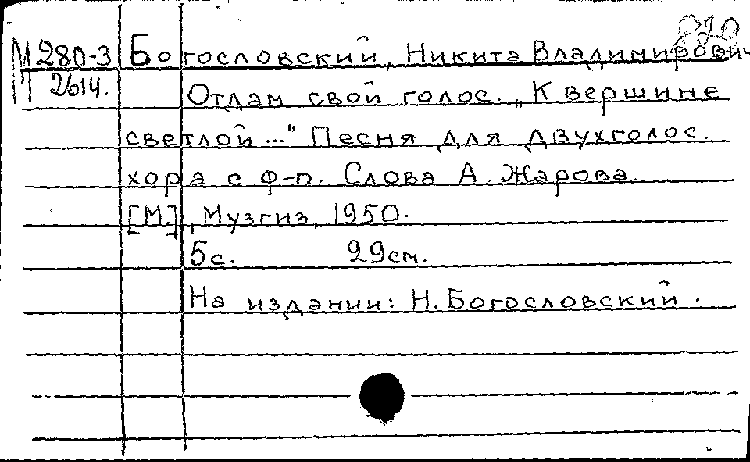 М 280-3 Богословский, Никита Владимирович
2614.
Отдам свой голос. „К вершине
светлой..." Песня для двухголос.
хора с ф-п. Слова А. Жарова.
[М.], Музгиз, 1950.
5с. 29см.
На издании: Н. Богословский.